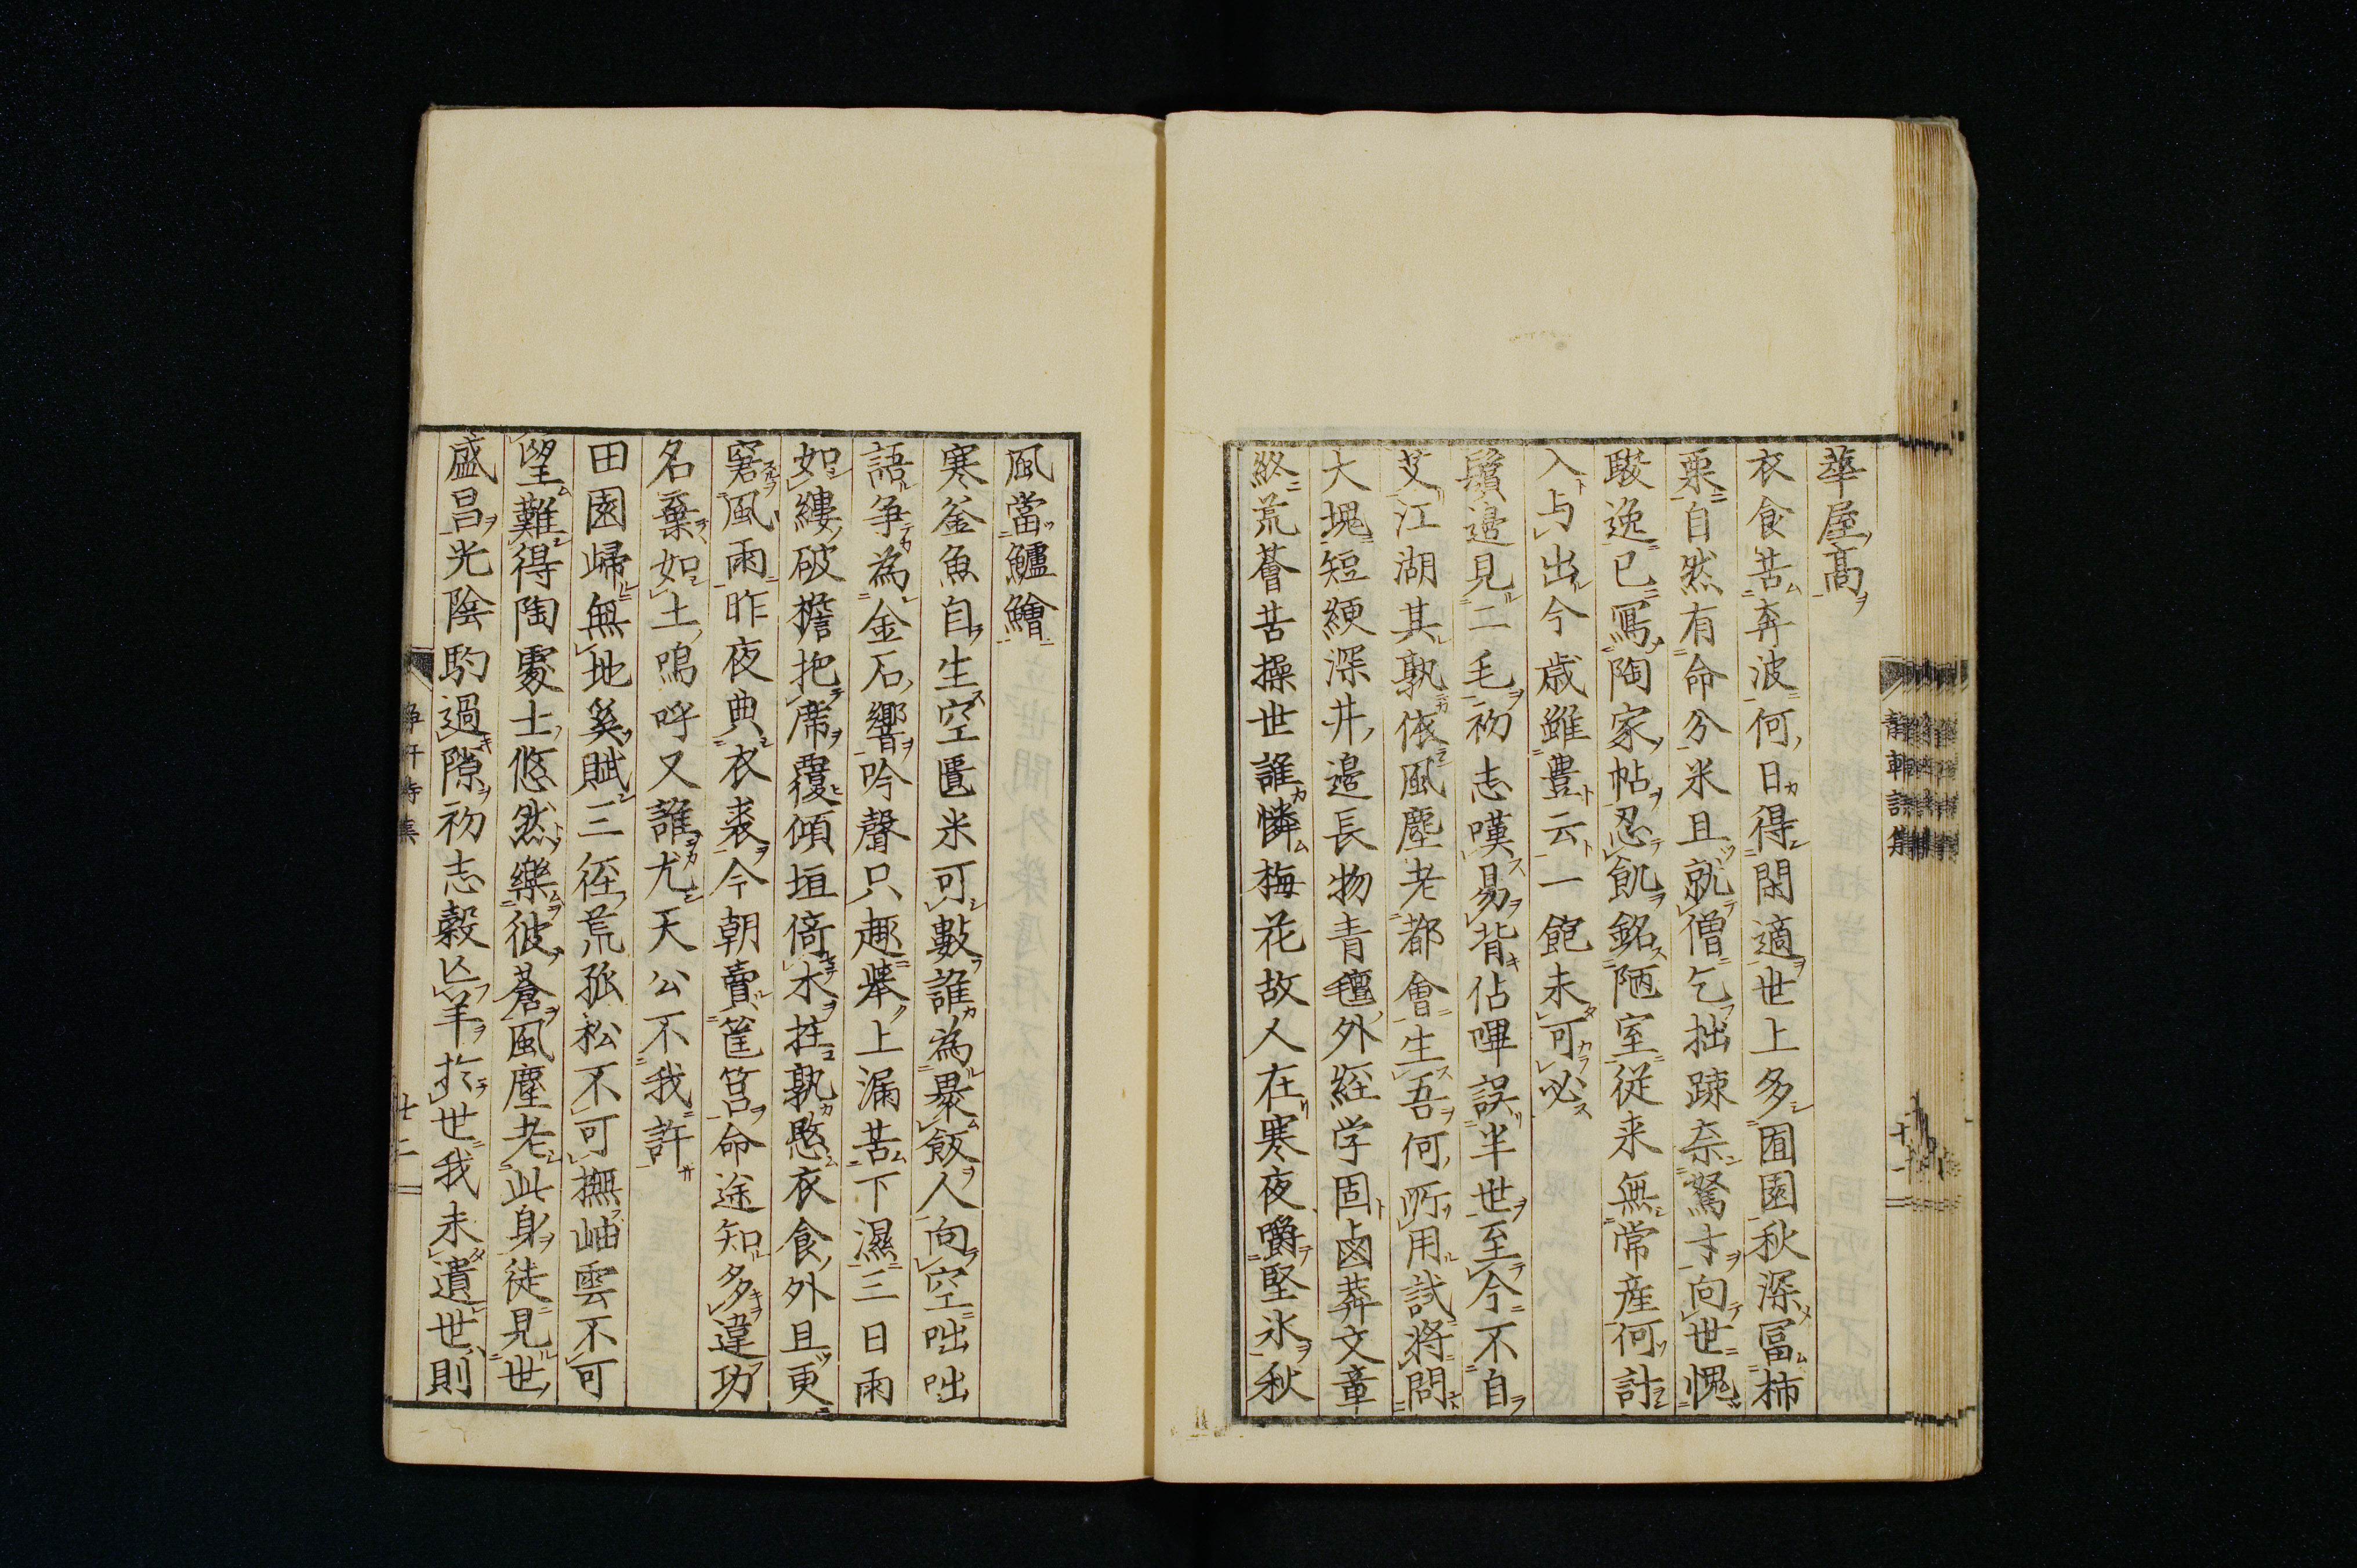 華屋高
衣食苦奔波何日得閑適世上多囿園秋深冨柿
栗自然有命分米且就僧乞拙踈奈駑才向世愧
駿逸已寫陶家帖忍飢銘陋室従来無常産何計
入与出今歳雖豊云一飽未可必
鬢邉見二毛初志嘆易背佔嗶誤半世至今不自
艾江湖其孰依風塵老都會生吾何所用試将問
大塊短綆深井邉長物青氊外経学固鹵莽文章
終荒薈苦操世誰憐梅花故人在寒夜嚼堅氷秋
風當鱸鱠
寒釜魚自生空匱米可數誰為爨飯人向空咄咄
語争為金石響吟聲只趣舉上漏苦下濕三日雨
如縷破檐把席覆傾垣倚木拄孰愍衣食外且更
窘風雨昨夜典衣裘今朝賣筐筥命途知多違功
名棄如土嗚呼又誰尤天公不我許
田園歸無地奚賦三徑荒孤松不可撫岫雲不可
望難得陶處士悠然樂彼蒼風塵老此身徒見世
盛昌光陰駒過隙初志穀亡羊於世我未遺世則
十一
廿二